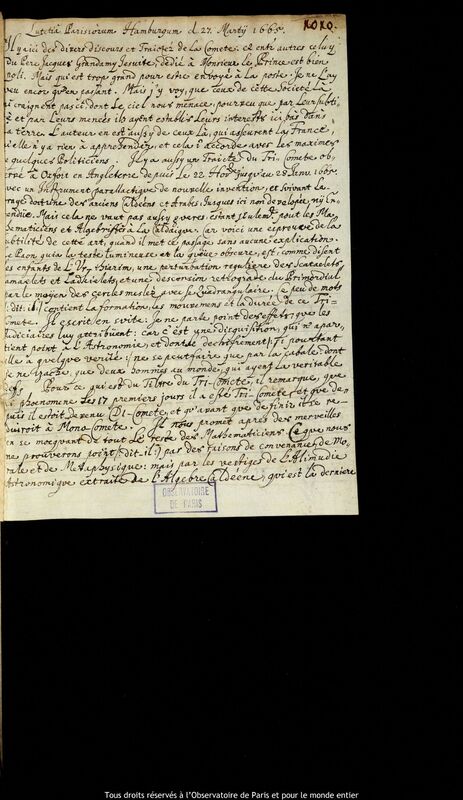 Lutetia Parisiorum Hamburgum d 27. Martij 1665.
1010.
Il y a ici des divers discours et Traictez de la Comete. et entre autres celuy
du Pere Jacques Grandamy Jesuite, dedié à Monsieur le Prince est bien
poli. Mais qui est trop grand pour estre envoyé à la poste. Je ne l'ay
veu encor qu'en passant. Mais j'y voy, que ceux de cette Societé là
ni craignent pas ici, dont le ciel nous menace, pourveu que par leur subti-
té et par leurs menées ils ayent establis leurs interests ici bas dans
la terre. L'auteur en est aussy de ceux là, qui asseurent la France
qu'elle n'y a rien à apprehender, et cela s'accorde avec les maximes
de quelques Politiciens. Il y a aussy un Traicté du Tri-Comete ob-
servé à Oxfort en Angleterre depuis le 22 jusqu'au 28 1665.
avec un Instrument parallactique de nouvelle invention, et suivant la
vraye doctrine des anciens Caldéens et Arabes, jusques ici non developée, ny in-
tendüe. Mais cela ne vaut pas aussy guères, estant seulement pour les Ma-
thematiciens et Algebristes à la Caldaique. Car voici une espreuve de la
subtilité de cette art, quand il met ce passage sans aucune explication.
Le Paon, qui a la teste lumineuse et la queue obscure, est, comme disent
les enfants de une perturbation reguliere des
et et une descorsion retrograde du Primordial
par le moyen des cercles meslez avec le Quadrangulaire. Ce jeu de mots
(dit-il) contient la formation, les mouvemens et la durée de ce Tri-
comete. Il escrit en suite: Je ne parle point des effets, que les
judiciaires luy attribuent: car c'est une disquisition, qui n'appar-
tient point à l'Astronomie, et dont le dechifrement, si pourtant
elle a quelque verité, ne se peut faire que par la cabale: dont
je ne sache, que deux hommes au monde, qui ayent la veritable
clefs. Pour ce qui est du Tiltre du Tri-Comete, il remarque, que
ce phoenomene les 17 premiers jours il a esté Tri-Comete: et que de-
puis il estoit devenu Di-Comete, et qu'avant que de finir il se re-
duiroit à Mono-Comete. Il nous promet après des merveilles
en se mocquant de tout le reste des Mathematiciens. Ce que nous
ne prouverons point, dit-il, par des raisons de convenance, de Mo-
rale et de Metaphysique: mais par les vestiges de l'Alimudie
Astronomique extraite de l'Algebre Caldéene, qui est la derniere
OBSERVATOIRE
DE PARIS
Tous droits réservés à l'Observatoire de Paris et pour le monde entier